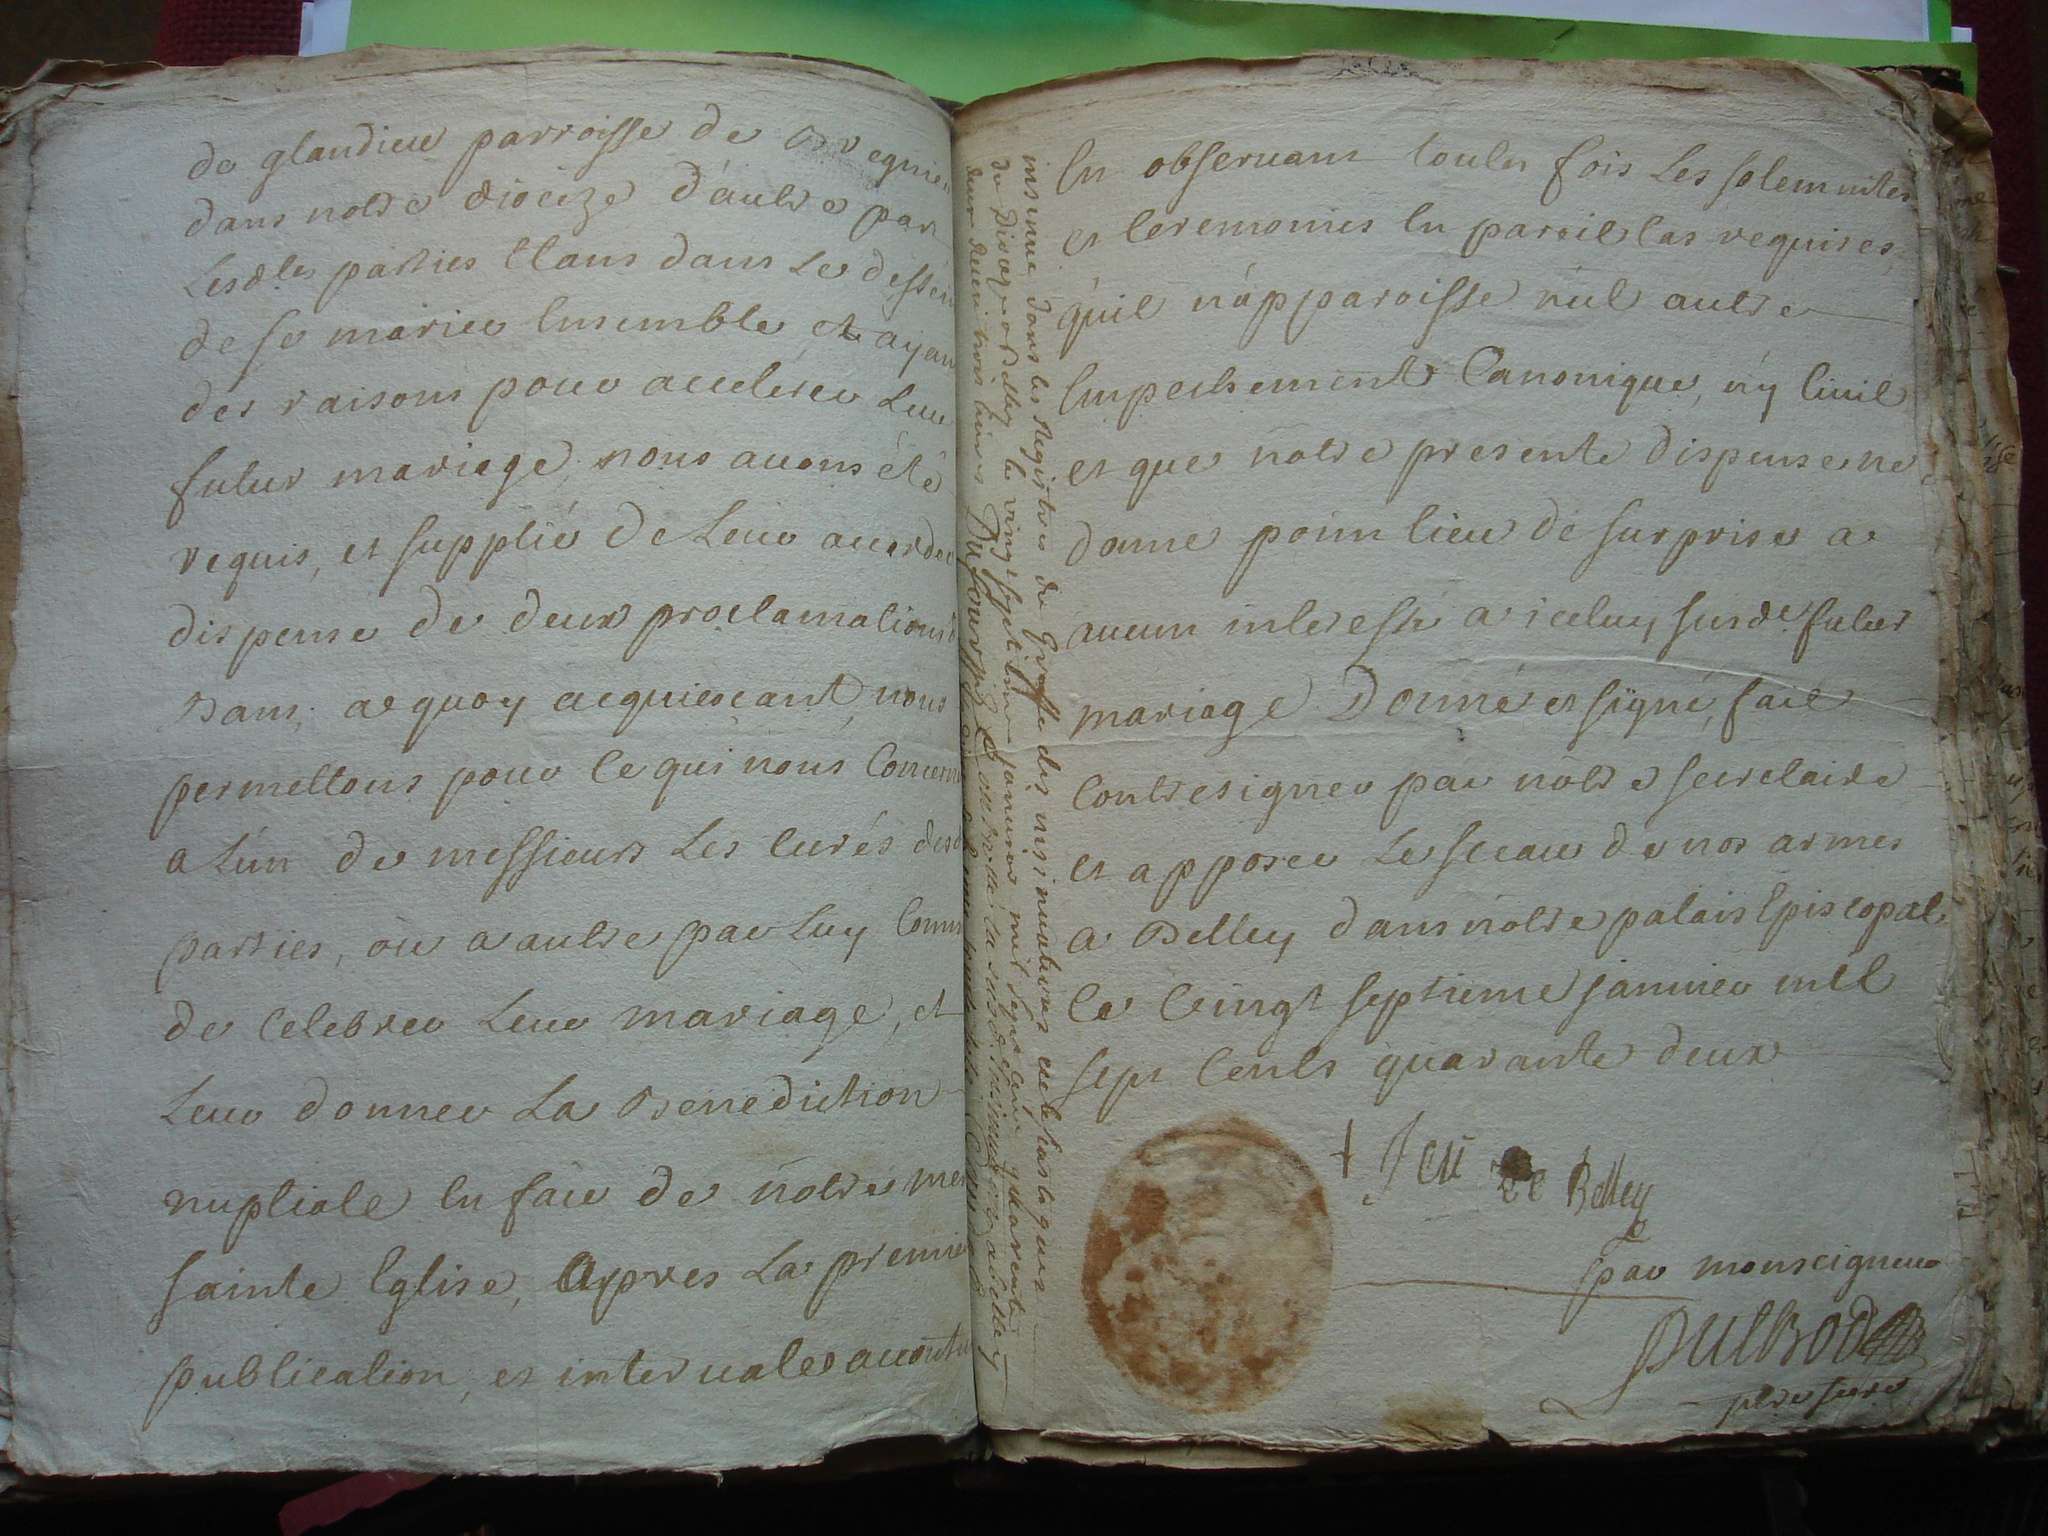 de glandieu parroisse de Bregnie
dans notre diocèze d'autre par
Lesdtes parties Etans dans Le dessein
de se marier Ensemble, et ayan
des raisons pour accelerer Leur
futur mariage, nous avons été
requis, et supplié de Leur accorder
dispense de deux proclamations de
Bans, a quoy acquiesçant, nous
permettons pour Ce qui nous Concerne
a L'un de messieurs Les Curés desd
parties, ou a autre par Luy Comm
de Celebrer Leur mariage, et
Leur donner La Benediction
nuptiale En face de notre mer
sainte Eglise, Apres La premier
publication, et intervale accoutu
insinué dans les Registres du Greffe des insinuations ecclesiastiques
du Diocese de Belley le vingt sept janvier mil sept cent quarente
deux
En observant toutes fois Les solemnites
et Ceremonies En pareil Cas requises,
qu'il n'apparoisse nul autre
Empechement Canonique, n'y Civil
et que notre presente dispense ne
donne point lieu de surprise a
aucun interessé a iceluy susdt futur
mariage Donné et signé, fait
Contresigner par notre secretaire
et apposer Le sceau de nos armes
a Belley dans notre palais Episcopal
Ce Vingt septieme janvier mil
sept Cents quarante deux
+ Jean Ev de Belley
par monseigneur